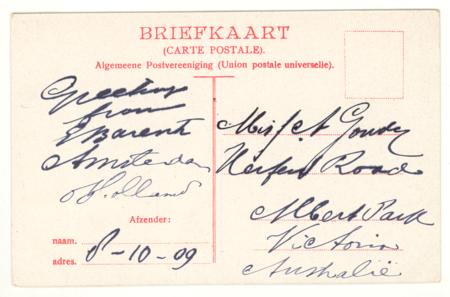 BRIEFKAART
(CARTE POSTALE).
Algemeene Postvereeniging (Union postale universelle).
Greetings
from
E Barents
Amsterdam
Holland
Afzender:
naam.
adres. 8-10-09
Miss A Goudy
Road
Albert Park
Victoria
Australië